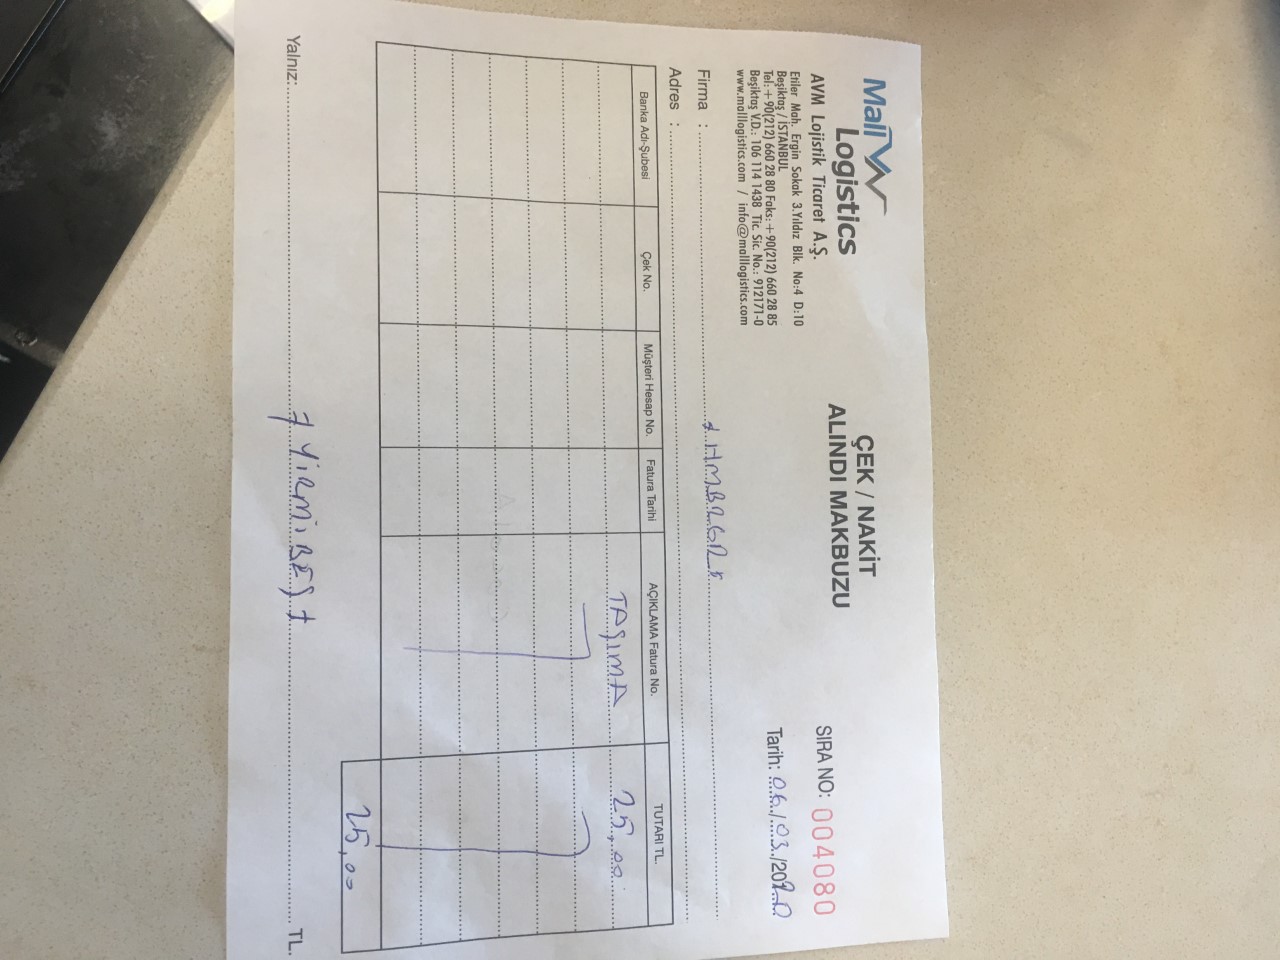 Mall
Logistics
AVM Lojistik Ticaret A.Ş.
Etiler Mah. Ergin Sokak 3.Yıldız Blk. No:4 D:10
Beşiktaş / İSTANBUL
Tel:+90(212) 660 28 80 Faks:+90(212) 660 28 85
Beşiktaş V.D.: 106 114 1438 Tic. Sic. No.: 912171-0
www.malllogistics.com / info@malllogistics.com
ÇEK / NAKİT
ALINDI MAKBUZU
SIRA NO: 004080
Tarih: 06/03/2020
Firma : HMBRGR
Adres :
Banka Adı-Şubesi Çek No. Müşteri Hesap No. Fatura Tarihi AÇIKLAMA Fatura No. TUTARI TL.
TAŞIMA 25,00
25,00
Yalnız: YİRMİBEŞ TL.